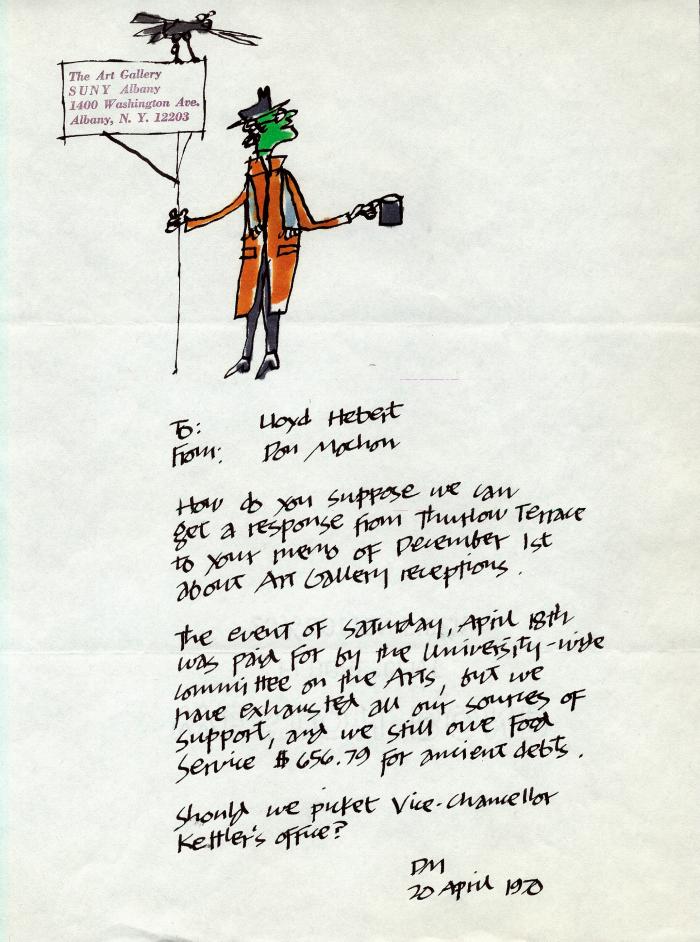 The Art Gallery
SUNY Albany
1400 Washington Ave.
Albany, N. Y. 12203
To: Lloyd Hebert
From: Don Mochon
How do you suppose we can
get a response from Thurlow Terrace
to your memo of December 1st
about Art Gallery receptions.
The event of Saturday, April 18th
was paid for by the University-wide
Committee on the Arts, but we
have exhausted all our sources of
support, and we still owe Food
Service $656.79 for ancient debts.
Should we picket Vice-Chancellor
Kettler's office?
DM
20 April 1970